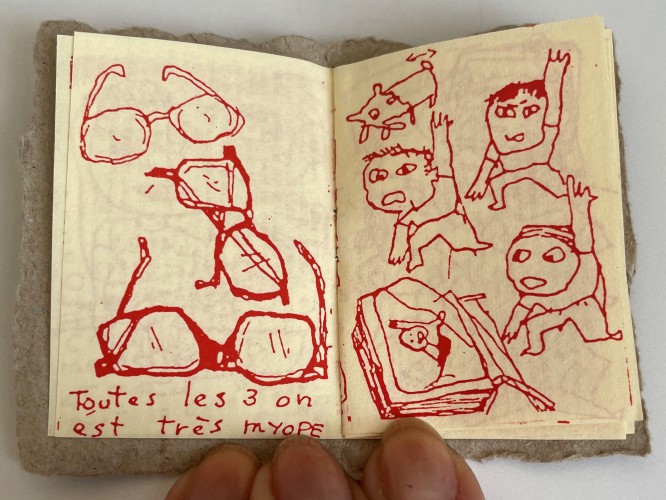 Toutes les 3 on
est très myope